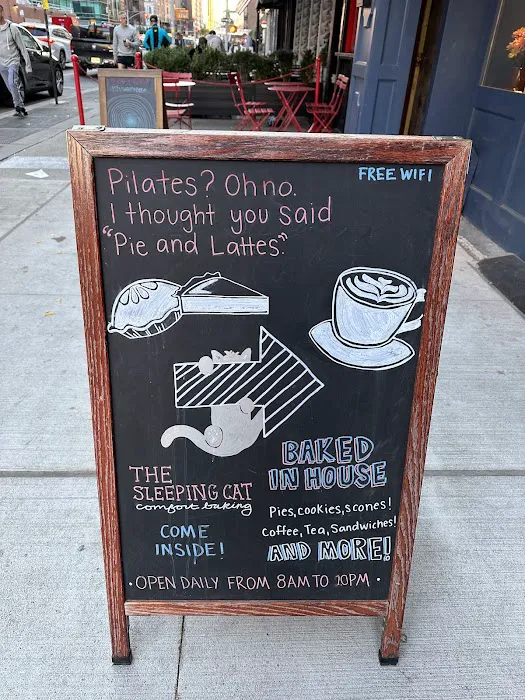 Pilates? Oh no.
I thought you said
"Pie and Lattes."
FREE WIFI
THE
SLEEPING CAT
comfort baking
COME
INSIDE!
BAKED
IN HOUSE
Pies, cookies, scones!
Coffee, Tea, Sandwiches!
AND MORE!
• OPEN DAILY FROM 8AM TO 10PM •